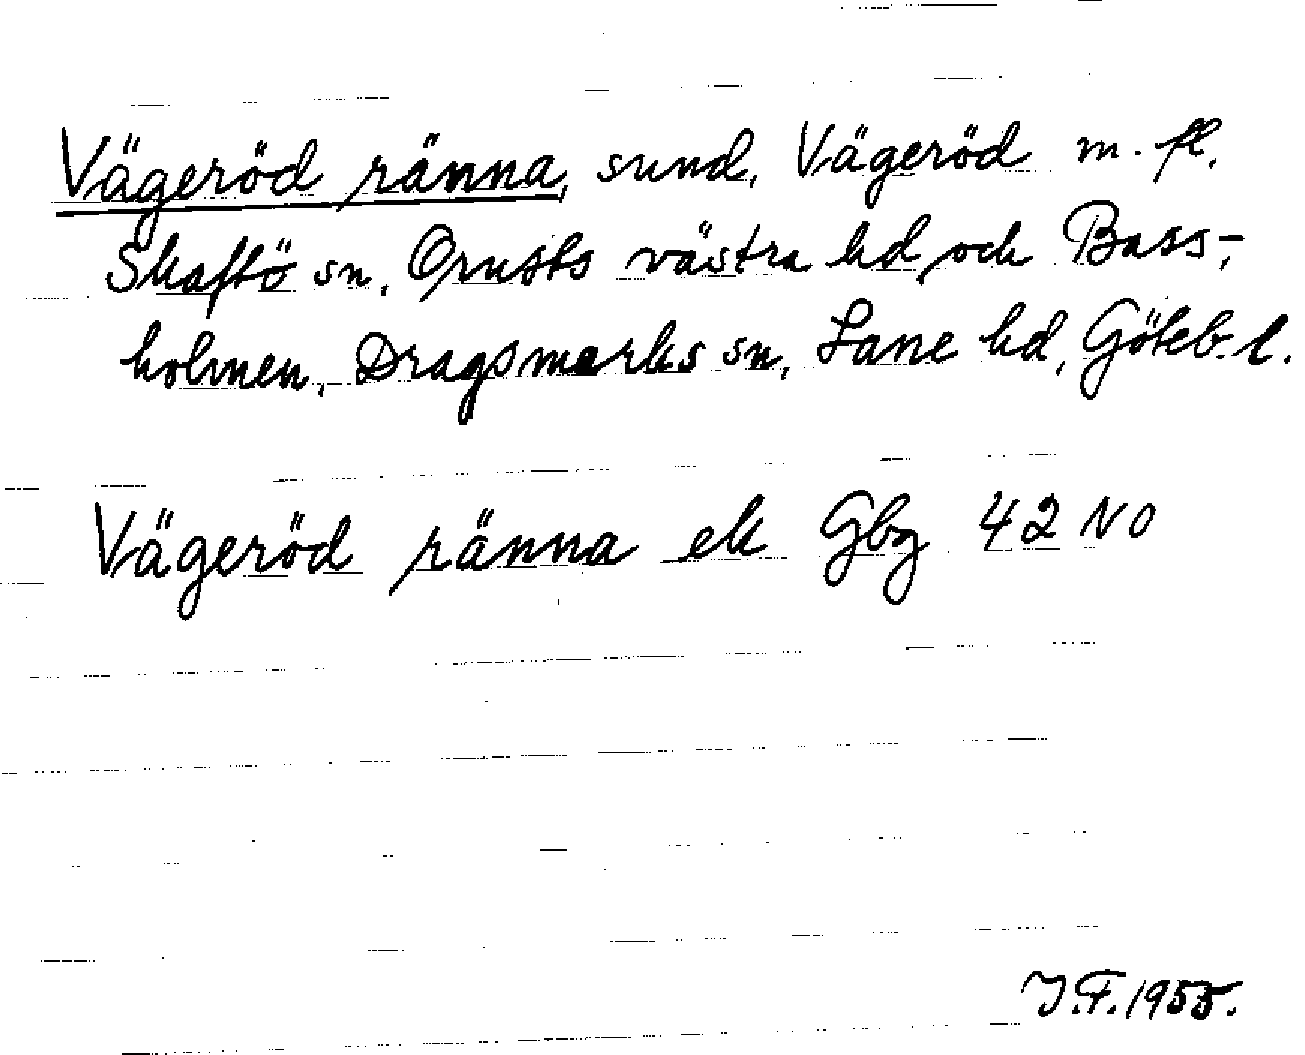 Vägeröd ränna, sund, Vägeröd m. fl.
Skaftö sn, Orusts västra hd och Bass-,
holmen, Dragsmarks sn, Lane hd, Göteb. l.
Vägeröd ränna ek Gbg 42 NO
J.F. 1955.